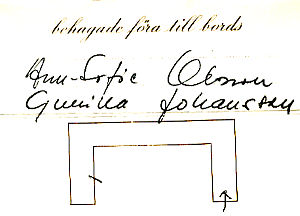 behagade föra till bords
Ann-Sofie Olsson
Gunilla Johansson